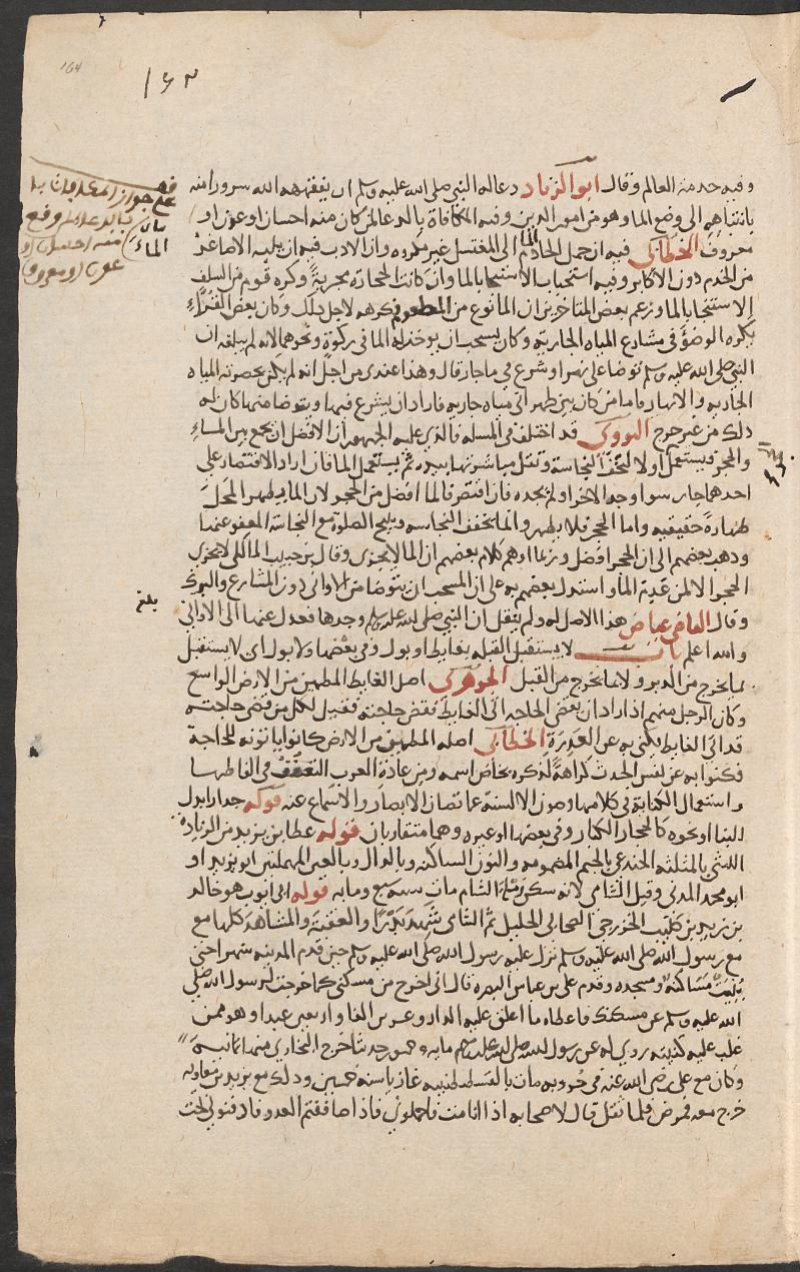 164
١٦٣
وفيه خدمة العالم وقال ابو الزناد دعا له النبي صلى الله عليه وسلم ان يفقهه الله سرورا منه
بانتباهه الى وضع الما وهو من امور الدين وفيه المكافاة بالدعا لمن كان منه احسان او عون او
معروف الخطابي فيه ان حمل الخادم الما الى المغتسل غير مكروه وان الادب فيه ان يليه الاصاغر
من الخدم دون الاكابر وفيه استحباب الاستنجا بالما وان كانت الحجارة مجزية وكره قوم من السلف
الاستنجا بالما وزعم بعض المتاخرين ان الما نوع من المطعوم فكرهه لاجل ذلك وكان بعض القراء
يكره الوضؤ في مشارع المياه الجارية وكان يستحب ان يوخذ له الما في ركوة ونحوها لانه لم يبلغه ان
النبي صلى الله عليه وسلم توضا على نهر او شرع في ما جار قال وهذا عندي من اجل انه لم يكن بحضرته المياه
الجاريه والانهار فاما من كان بين ظهراني مياه جاريه فاراد ان يشرع فيها ويتوضا منها كان له
ذلك من غير حرج النووي قد اختلف في المسله فالذي عليه الجمهور ان الافضل ان يجمع بين الماء
والحجر فيستعمل اولا لتخف النجاسة وتقل مباشرتها بيده ثم يستعمل الما فان اراد الاقتصار على
احدهما جاز سوا وجد الاخر او لم يجده فان اقتصر فالما افضل من الحجر لان الما يطهر المحل
طهارة حقيقيه واما الحجر فلا يطهر وانما يخفف النجاسه ويبيح الصلوة مع النجاسة المعفو عنها
وذهب بعضهم الى ان الحجر افضل وربما اوهم كلام بعضهم ان الما لا يجزى وقال بن حبيب المالكي لا يجزى
الحجر الا لمن عدم الما واستدل بعضهم به على ان المستحب ان يتوضا من الاواني دون المشارع والبرك
وقال القاضي عياض هذا لا اصل له ولم ينقل ان النبي صلى الله عليه وسلم وجدها فعدل عنها الى الاواني
والله اعلم باب لا يستقبل القبله بغايط او بول وفي بعضها ولا بول اى لا يستقبل
بما يخرج من الدبر ولا بما يخرج من القبل الجوهري اصل الغايط المطمين من الارض الواسع
وكان الرجل منهم اذا اراد ان يقضي الحاجه اتى الغايط فقضى حاجته فقيل لكل من قضى حاجته
قد اتى الغايط يكنى به عن العذرة الخطابي اصله المطمين من الارض كانوا ياتونه للحاجة
فكنوا به عن نفس الحدث كراهة لذكره بخاص اسمه ومن عادة العرب التعفف في الفاظها
واستعمال الكناية في كلامها وصون الالسنة عما تصان الابصار والاسماع عنه قوله جدار ابول
البنا او نحوه كالحجار الكبار وفي بعضها او غيره وهما متقاربان قوله عطا بن يزيد من الزيادة
الليثي بالمثلثة الجندعي بالجيم المضمومه والنون الساكنه وبالدال وبالعين المهملتين ابو يزيد او
ابو محمد المدني وقيل الشامي لانه سكن رملة الشام مات سنة سبع ومايه قوله ابي ايوب هو خالد
بن زيد بن كليب الخزرجي الصحابي الجليل شهد بدرا والعقبة والمشاهد كلها مع
مع رسول الله صلى الله عليه وسلم نزل عليه رسول الله صلى الله عليه وسلم حين قدم المدينه شهرا حتى
بنيت مساكنه ومسجده وقدم على بن عباس البصرة فقال اني اخرج من مسكني كما خرجت لرسول الله صلى
الله عليه وسلم عن مسكنك فاعطاه ما اغلق عليه الدار وعشرين الفا واربعين عبدا وهو ممن
غلب عليه كنيته روي له عن رسول الله صلى الله عليه وسلم مايه وخمسون حديثا خرج البخاري منها ثمانية
وكان مع علي رضي الله عنه في حروبه مات بالقسطنطينيه غازيا سنه خمسين وذلك مع يزيد بن معاويه
خرج معه فمرض فلما ثقل قال لاصحابه اذا انا مت فاحملوني فاذا صاففتم العدو فادفنوني تحت
على جواز المكافاة با
بالدعا لمن وقع
الماء منه احسان او
عون او معروف
بلغ